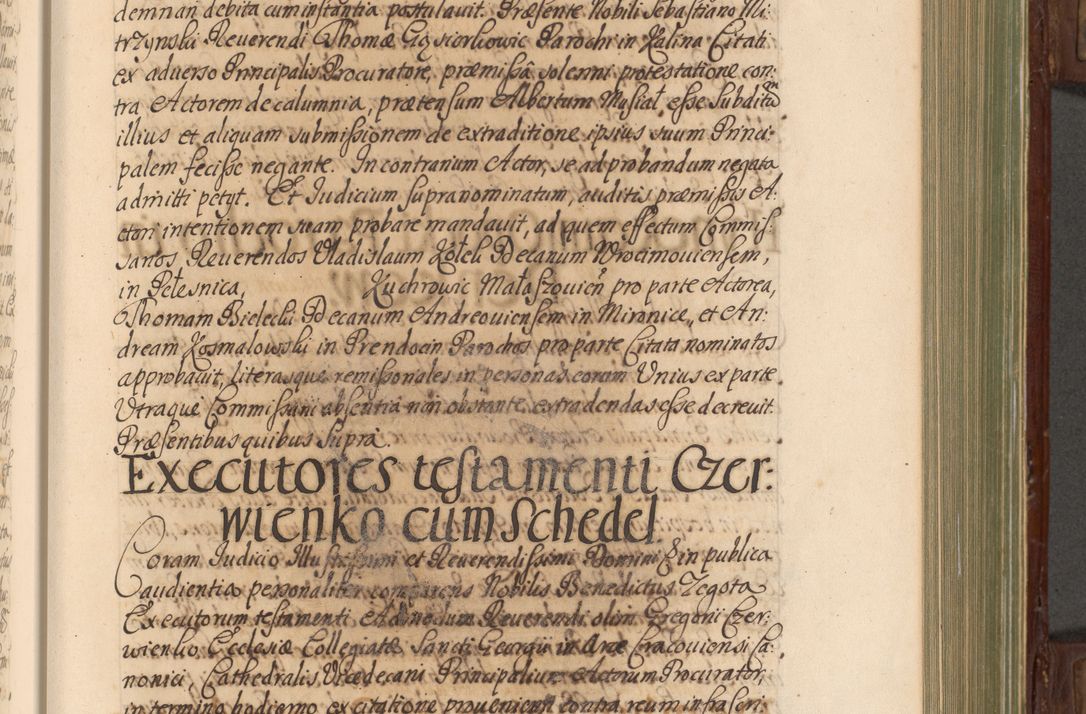 demnari debita cum instantia postulauit. Præsente Nobili Sebastiano Mi-
trzynski Reuerendi Thomæ Gąsiorkowic Parochi in Kalina Citati
ex aduerso Principalis Procuratore, præmissâ solenni protestatione con-
tra Actorem de calumnia, prætensum Albertum Musiał esse Subditũ
illius et aliquam submissionem de extraditione ipsius suum Princi-
palem fecisse negante. In contrarium Actor, se ad probandum negata
admitti petyt. Et Iudicium supranominatum, auditis præmissis A-
ctori intentionem suam probare mandauit, ad quem effectum Commis-
sarios Reuerendos Vladislaum Kołek Decanum Wrocimouiensem,
in Pełesnica, Kuchrowic Małaszouień pro parte Actorea,
Thomam Bielecki Decanum Andreouiensem in Mironice, et An-
dream Kosmalowski in Prendocin Parochos pro parte Citata nominatos
approbauit, literasque remissionales in personas eorum Unius ex parte
Utraque Commissarii absentia non obstante extradendas esse decreuit.
Præsentibus quibus supra.
Executores testamenti Czer-
wienko cum Schedel
Coram Iudicio Illustrissimi et Reuerendissimi Domini E in publica
audientia personaliter comparens Nobilis Benedictus Zegota
Executorum testamenti Admodum Reuerendi olim Gregorii Czer-
wienko, Ecclesiæ Collegiatæ Sancti Georgii in Arce Cracouiensi Ca-
nonici, Cathedralis Vicedecani Principalium Actorum Procurator,
in termino hodierno ex citatione proueniens contra reum infrascri-